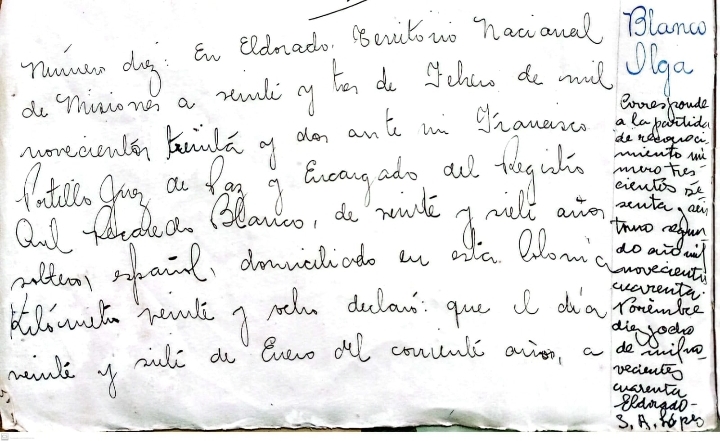 Número diez: En Eldorado, Territorio Nacional
de Misiones a veinte y tres de Febrero de mil
novecientos treinta y dos ante mi Francisco
Portillo Juez de Paz y Encargado del Registro
Civil Recaredo Blanco, de veinte y siete años
soltero, español, domiciliado en esta Colonia
Kilómetro veinte y ocho declaró: que el día
veinte y siete de Enero del corriente año, a
Blanco
Ilga
Corresponde
a la partida
de reconoci
miento nú
mero tres
cientos se
senta y seis
tomo segun
do año mil
novecientos
cuarenta.
Noviembre
diez y ocho
de mil no
vecientos
cuarenta
Eldorado-
S. A. López